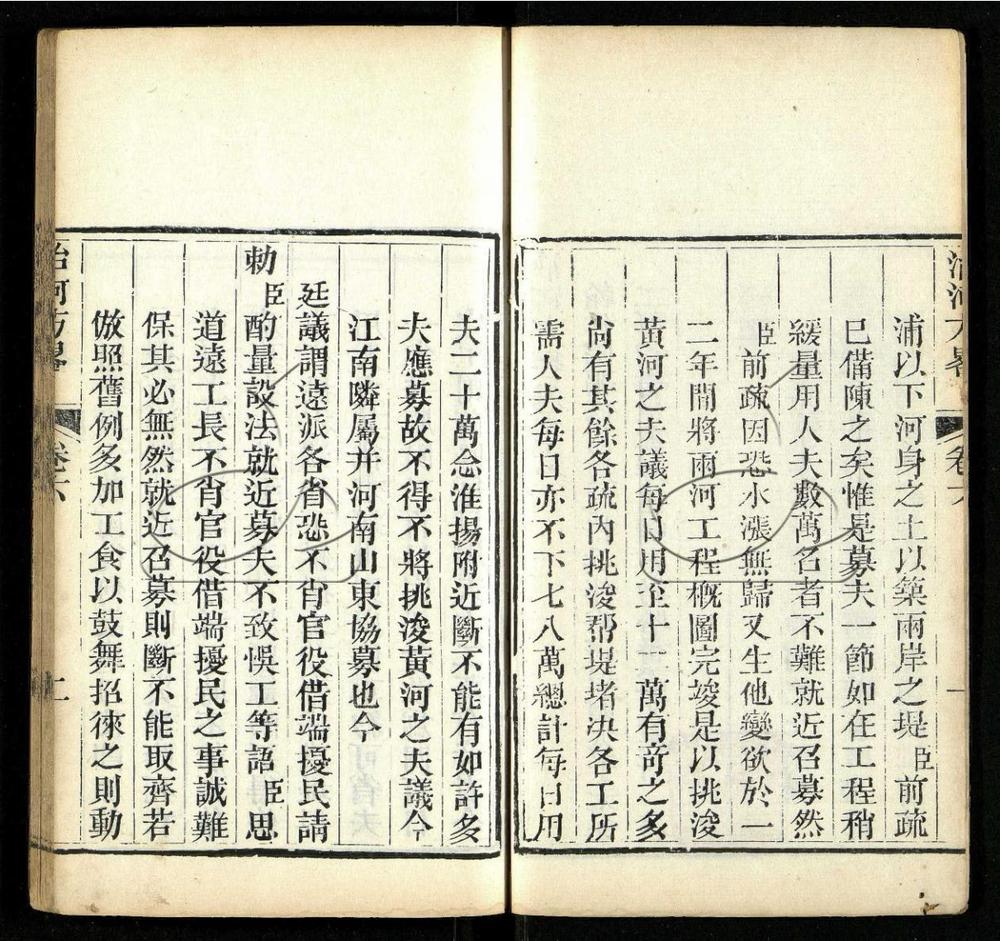 治河方畧
卷六
一
浦以下河身之土以築兩岸之堤臣前疏
巳備陳之矣惟是募夫一節如在工程稍
緩量用人夫數萬名者不難就近召募然
臣前疏因恐水漲無歸又生他變欲於一
二年間將兩河工程概圖完竣是以挑浚
黃河之夫議每日用至十二萬有奇之多
尚有其餘各疏內挑浚帮堤堵决各工所
需人夫每日亦不下七八萬總計每日用
夫二十萬念淮揚附近斷不能有如許多
夫應募故不得不將挑浚黃河之夫議令
江南隣屬并河南山東協募也今
廷議謂遠派各省恐不肖官役借端擾民請
勅臣酌量設法就近募夫不致悞工等語臣思
道遠工長不肖官役借端擾民之事誠難
保其必無然就近召募則斷不能取齊若
倣照舊例多加工食以鼓舞招徠之則動
治河方畧
卷六
二